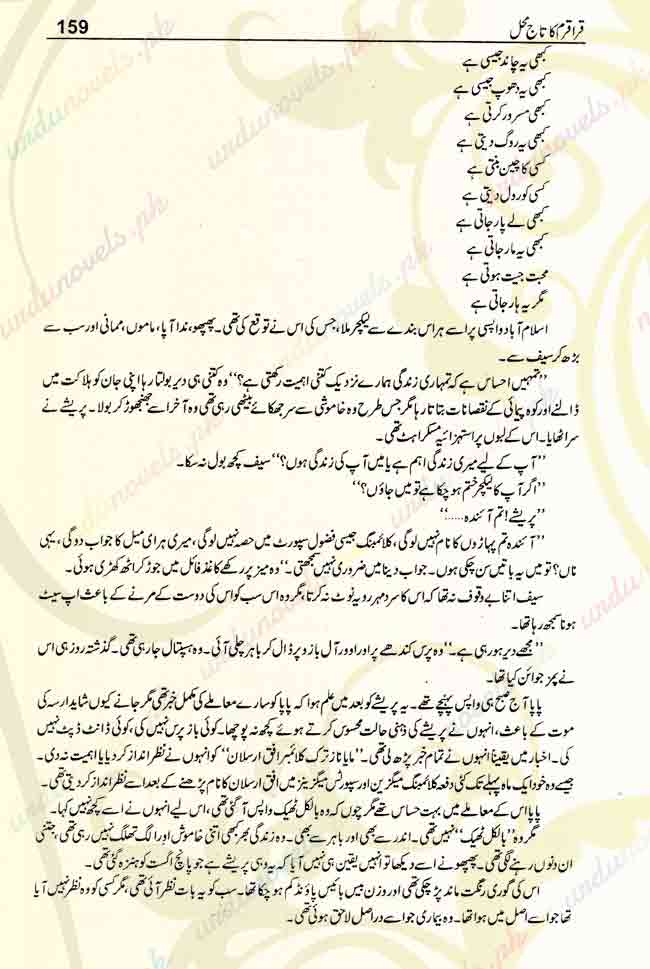 159 قراقرم کا تاج محل
کبھی یہ چاند جیسی ہے
کبھی یہ دھوپ جیسی ہے
کبھی مسرور کرتی ہے
کبھی یہ روگ دیتی ہے
کسی کا چین بنتی ہے
کسی کو رول دیتی ہے
کبھی لے پار جاتی ہے
کبھی یہ مار جاتی ہے
محبت جیت ہوتی ہے
مگر یہ ہار جاتی ہے
اسلام آباد واپسی پر اسے ہر اس بندے سے لیکچر ملا، جس کی اس نے توقع کی تھی۔ پھپھو، ندا آپا، ماموں، ممانی اور سب سے
بڑھ کر سیف سے۔
”تمہیں احساس ہے کہ تمہاری زندگی ہمارے نزدیک کتنی اہمیت رکھتی ہے؟“ وہ کتنی ہی دیر بولتا رہا اپنی جان کو ہلاکت میں
ڈالنے اور کوہ پیمائی کے نقصانات بتاتا رہا مگر جس طرح وہ خاموشی سے سر جھکائے بیٹھی رہی تھی وہ آخر اسے جھنجھوڑ کر بولا۔ پریشے نے
سر اٹھایا۔ اس کے لبوں پر استہزائیہ مسکراہٹ تھی۔
”آپ کے لیے میری زندگی اہم ہے یا میں آپ کی زندگی ہوں؟“ سیف کچھ بول نہ سکا۔
”اگر آپ کا لیکچر ختم ہو چکا ہے تو میں جاؤں؟“
”پریشے! تم آئندہ.....“
”آئندہ تم پہاڑوں کا نام نہیں لو گی، کلائمبنگ جیسی فضول سپورٹ میں حصہ نہیں لو گی، میری ہر ای میل کا جواب دو گی، یہی
ناں؟ تو میں یہ باتیں سن چکی ہوں۔ جواب دینا میں ضروری نہیں سمجھتی۔“ وہ میز پر رکھے کاغذ فائل میں جوڑ کر اٹھ کھڑی ہوئی۔
سیف اتنا بے وقوف نہ تھا کہ اس کا سرد مہر رویہ نوٹ نہ کرتا، مگر وہ اس سب کو اس کی دوست کے مرنے کے باعث اپ سیٹ
ہونا سمجھ رہا تھا۔
”مجھے دیر ہو رہی ہے۔“ وہ پرس کندھے پر اور اوور آل بازو پر ڈال کر باہر چلی آئی۔ وہ ہسپتال جا رہی تھی۔ گذشتہ روز ہی اس
نے پمز جوائن کیا تھا۔
پاپا آج صبح ہی واپس پہنچے تھے۔ یہ پریشے کو بعد میں علم ہوا کہ پاپا کو سارے معاملے کی مکمل خبر تھی مگر جانے کیوں شاید ارسہ کی
موت کے باعث، انہوں نے پریشے کی ذہنی حالت محسوس کرتے ہوئے کچھ نہ پوچھا۔ کوئی باز پرس نہیں کی، کوئی ڈانٹ ڈپٹ نہیں
کی۔ اخبار میں یقیناً انہوں نے تمام خبر پڑھ لی تھی۔ ”مایا ناز ترک کلائمبر افق ارسلان“ کو انہوں نے نظر انداز کر دیا یا اہمیت نہ دی۔
جیسے وہ خود ایک ماہ پہلے تک کئی دفعہ کلائمبنگ میگزین اور سپورٹس میگزینز میں افق ارسلان کا نام پڑھنے کے بعد اسے نظر انداز کر دیتی تھی۔
پاپا اس کے معاملے میں بہت حساس تھے مگر چوں کہ وہ بالکل ٹھیک واپس آ گئی تھی، اس لیے انہوں نے اسے کچھ نہیں کہا۔
مگر وہ ”بالکل ٹھیک“ نہیں تھی۔ اندر سے بھی اور باہر سے بھی۔ وہ زندگی بھر کبھی اتنی خاموش اور الگ تھلگ نہیں رہی تھی، جتنی
ان دنوں رہنے لگی تھی۔ پھپھو نے اسے دیکھا تو انہیں یقین ہی نہیں آیا کہ یہ وہی پریشے ہے جو پانچ اگست کو ہنزہ گئی تھی۔
اس کی گوری رنگت ماند پڑ چکی تھی اور وزن بیس بائیس پاؤنڈ کم ہو چکا تھا۔ سب کو یہ بات نظر آئی تھی، مگر کسی کو وہ نظر نہیں آیا
تھا جو اسے اصل میں ہوا تھا۔ وہ بیماری جو اسے دراصل لاحق ہوئی تھی۔
urdunovels.pk